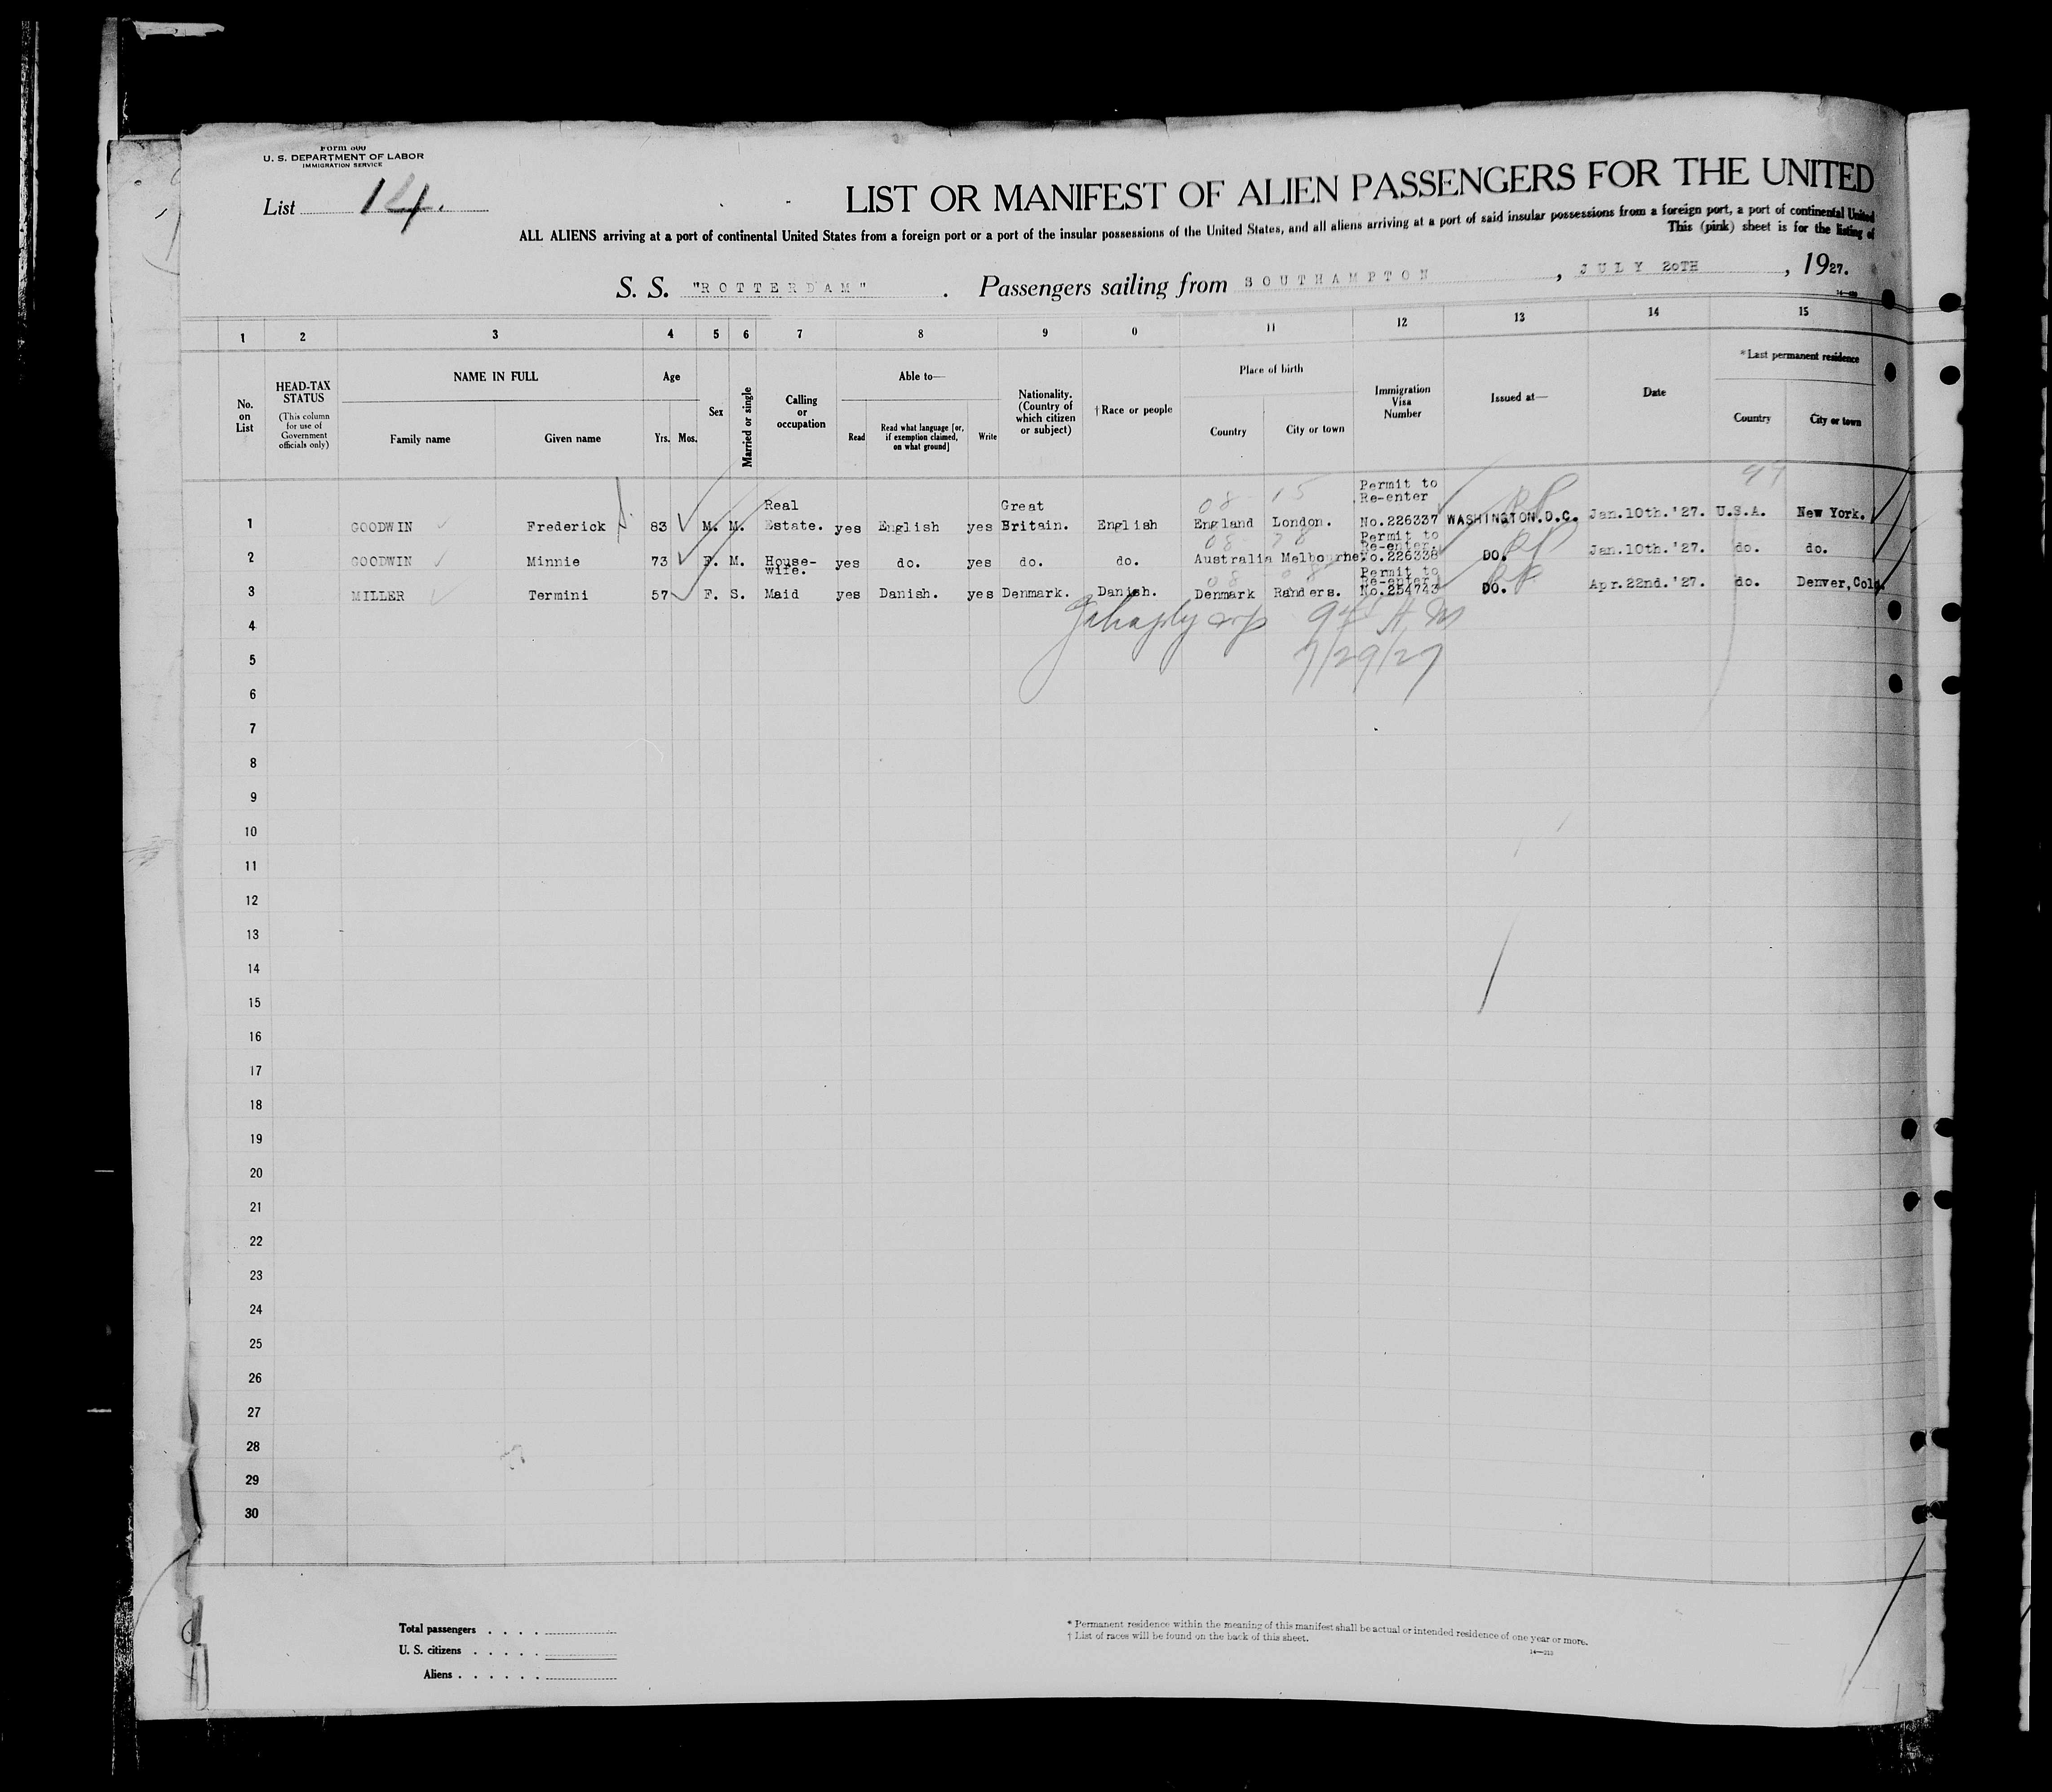 Form 500
U. S. DEPARTMENT OF LABOR
IMMIGRATION SERVICE
List 14.
LIST OR MANIFEST OF ALIEN PASSENGERS FOR THE UNITED
ALL ALIENS arriving at a port of continental United States from a foreign port or a port of the insular possessions of the United States, and all aliens arriving at a port of said insular possessions from a foreign port, a port of continental United
This (pink) sheet is for the listing of
S. S. "ROTTERDAM". Passengers sailing from SOUTHAMPTON, JULY 20TH, 1927.
1 2 3 4 5 6 7 8 9 0 11 12 13 14 15
No. on List
HEAD-TAX STATUS
(This column for use of Government officials only)
NAME IN FULL
Family name Given name
Age
Yrs. Mos.
Sex
Married or single
Calling or occupation
Able to—
Read
Read what language [or, if exemption claimed, on what ground]
Write
Nationality. (Country of which citizen or subject)
†Race or people
Place of birth
Country City or town
Immigration Visa Number
Issued at—
Date
*Last permanent residence
Country City or town
1 GOODWIN Frederick 83 M. M. Real Estate. yes English yes Great Britain. English England London. Permit to Re-enter No.226337 WASHINGTON.D.C. Jan.10th.'27. U.S.A. New York.
2 GOODWIN Minnie 73 F. M. House-wife. yes do. yes do. do. Australia Melbourne Permit to Re-enter. No.226338 DO. Jan.10th.'27. do. do.
3 MILLER Termini 57 F. S. Maid yes Danish. yes Denmark. Danish. Denmark Randers. Permit to Re-enter No.254743 DO. Apr.22nd.'27. do. Denver,Colo.
7/29/27
4
5
6
7
8
9
10
11
12
13
14
15
16
17
18
19
20
21
22
23
24
25
26
27
28
29
30
Total passengers . . . .
U. S. citizens . . . . .
Aliens . . . . . .
* Permanent residence within the meaning of this manifest shall be actual or intended residence of one year or more.
† List of races will be found on the back of this sheet.